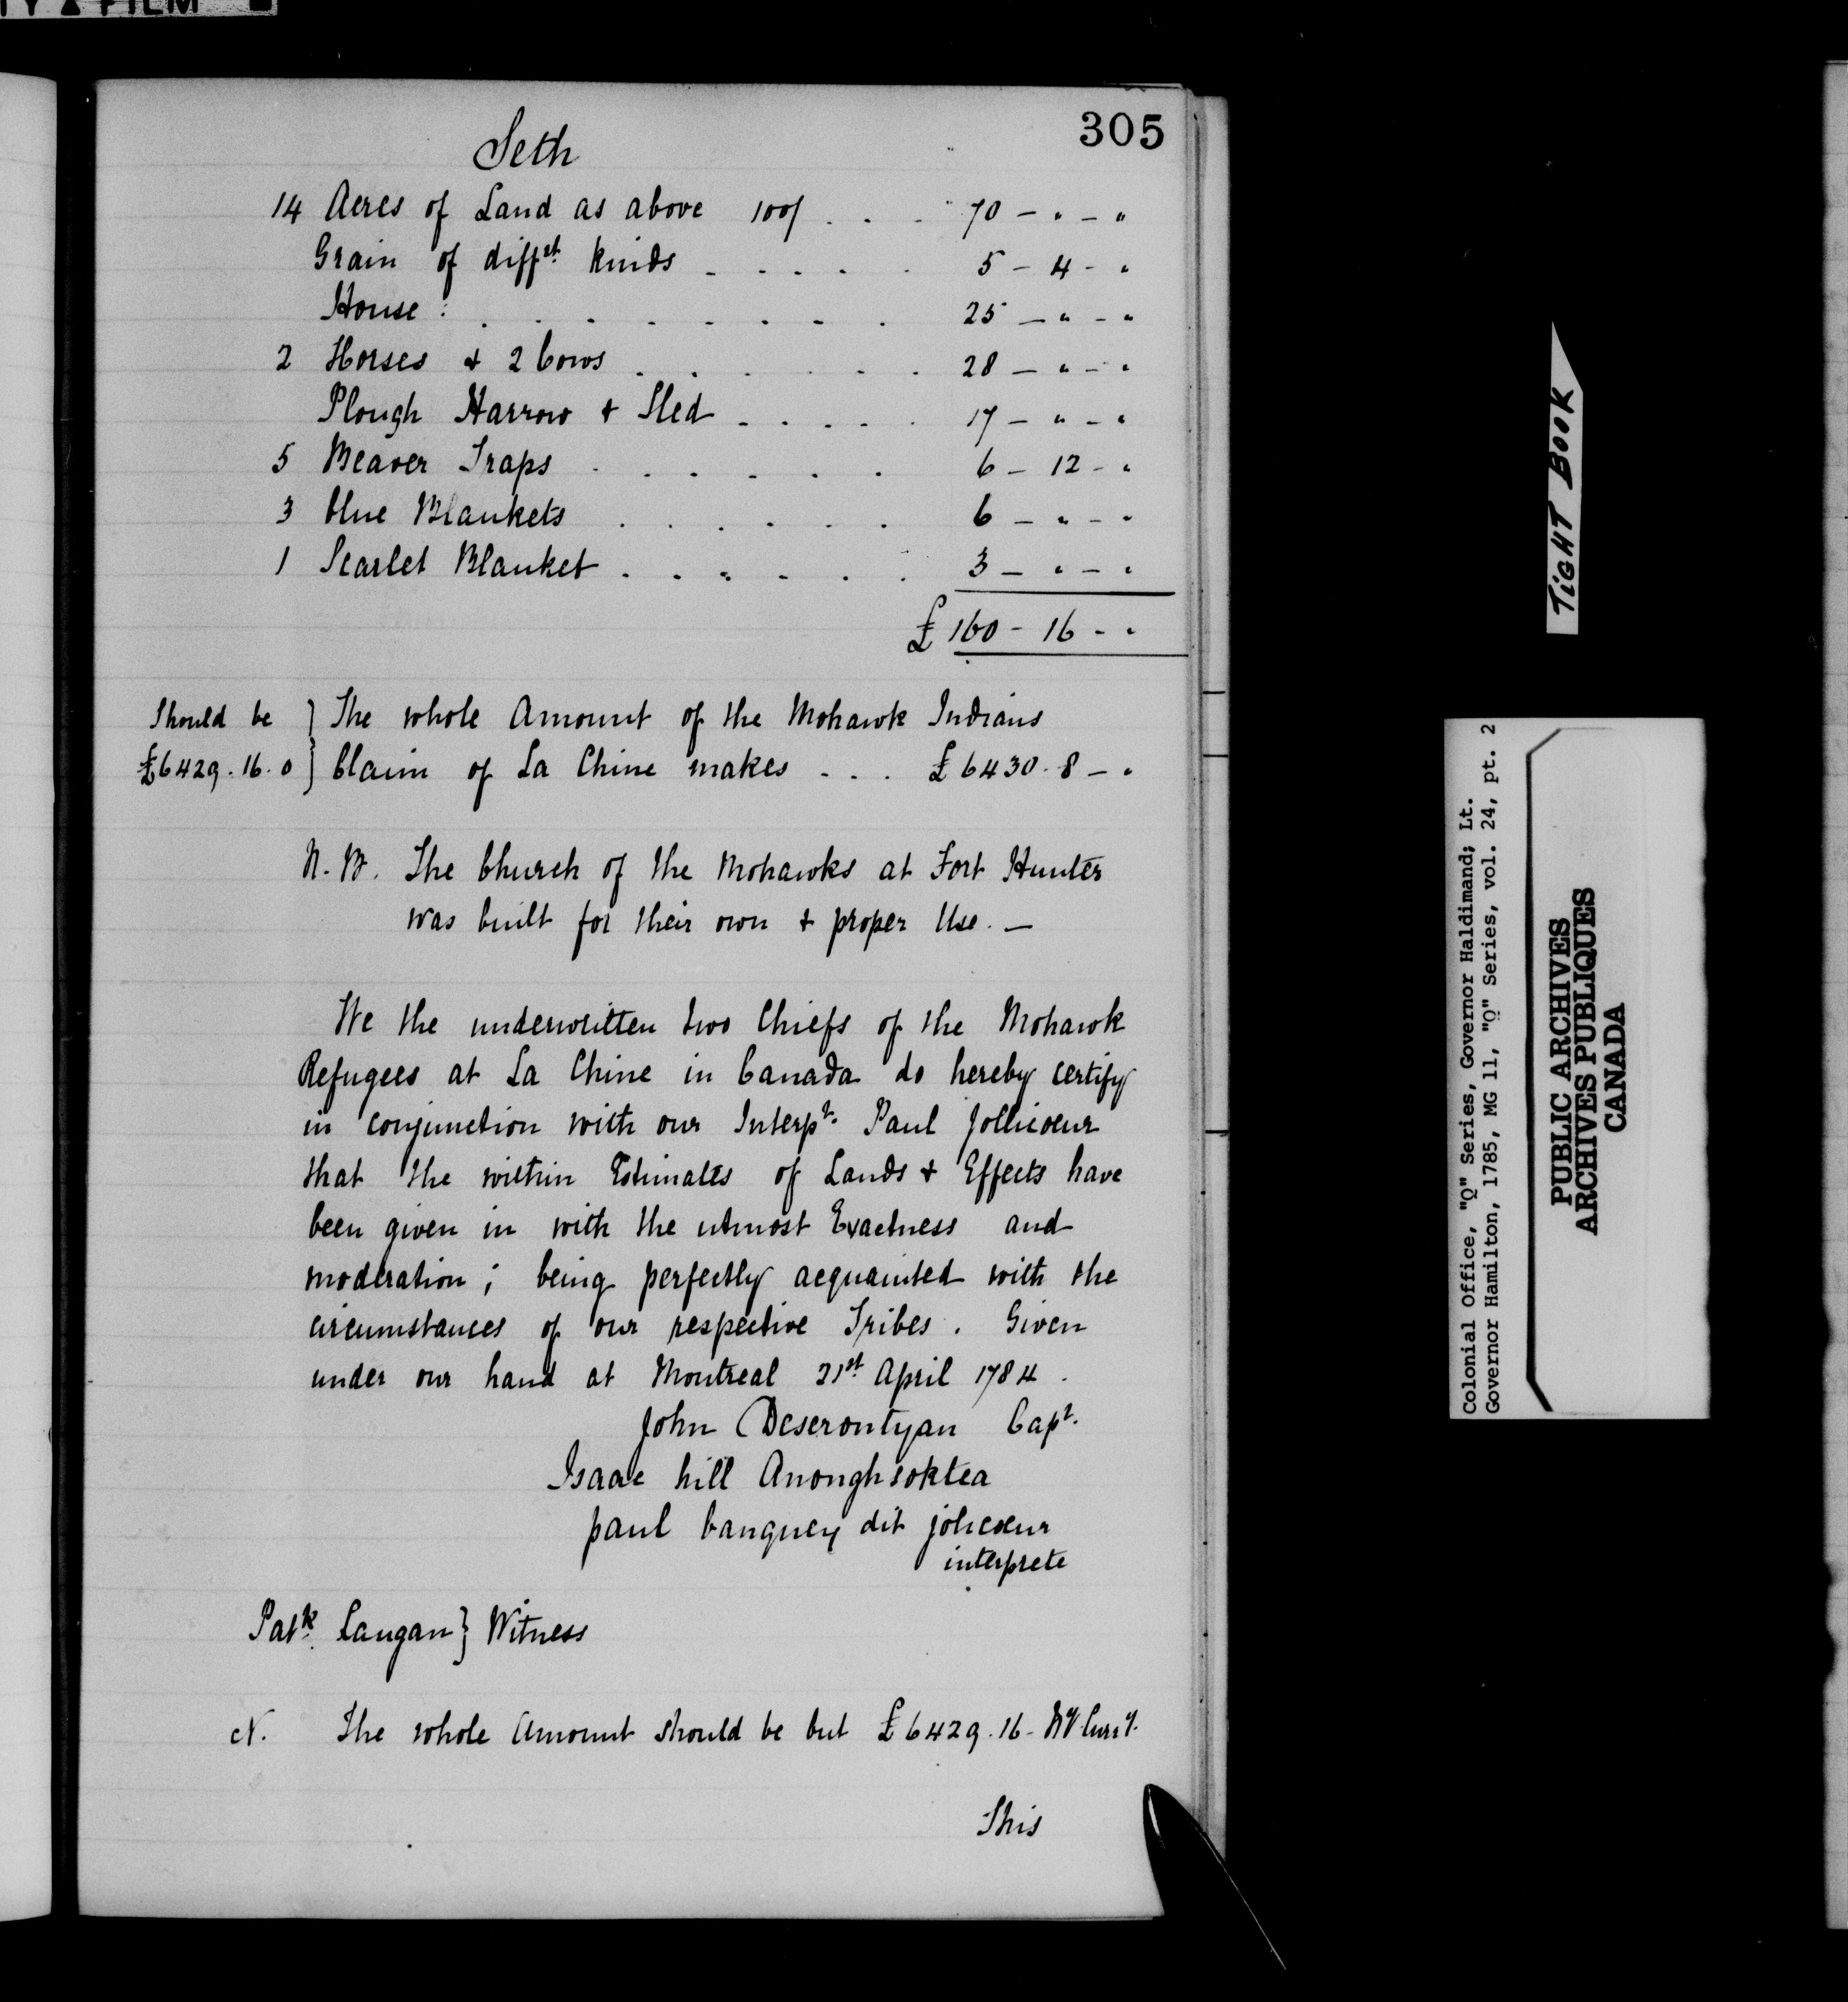 305
Seth
14 Acres of Land as above 100/ . . . 70 - " - "
Grain of diffrt. kinds . . . . . 5 - 4 - "
House : . . . . . . . . 25 - " - "
2 Horses & 2 Cows . . . . . . 28 - " - "
Plough Harrow & Sled . . . . . 17 - " - "
5 Beaver Traps . . . . . . 6 - 12 - "
3 blue Blankets . . . . . . 6 - " - "
1 Scarlet Blanket . . . . . . 3 - " - "
£ 160 - 16 - "
Should be } The whole Amount of the Mohawk Indians
£6429.16.0 } Claim of La Chine makes . . . £ 6430. 8 - "
N.B. The Church of the Mohawks at Fort Hunter
was built for their own & proper Use. -
We the underwritten two Chiefs of the Mohawk
Refugees at La Chine in Canada do hereby certify
in conjunction with our Interpr. Paul Jollicoeur
that the within Estimates of Lands & Effects have
been given in with the utmost Exactness and
moderation; being perfectly acquainted with the
circumstances of our respective Tribes. Given
under our hand at Montreal 21st April 1784.
John Deserontyan Capt.
Isaac hill Anonghsoktea
paul dit jolicoeur
interprete
Patk. Langan } Witness
N. The whole Amount should be but £6429.16- NY Curry.
This
TIGHT BOOK
Colonial Office, "Q" Series, Governor Haldimand; Lt.
Governor Hamilton, 1785, MG 11, "Q" Series, vol. 24, pt. 2
PUBLIC ARCHIVES
ARCHIVES PUBLIQUES
CANADA